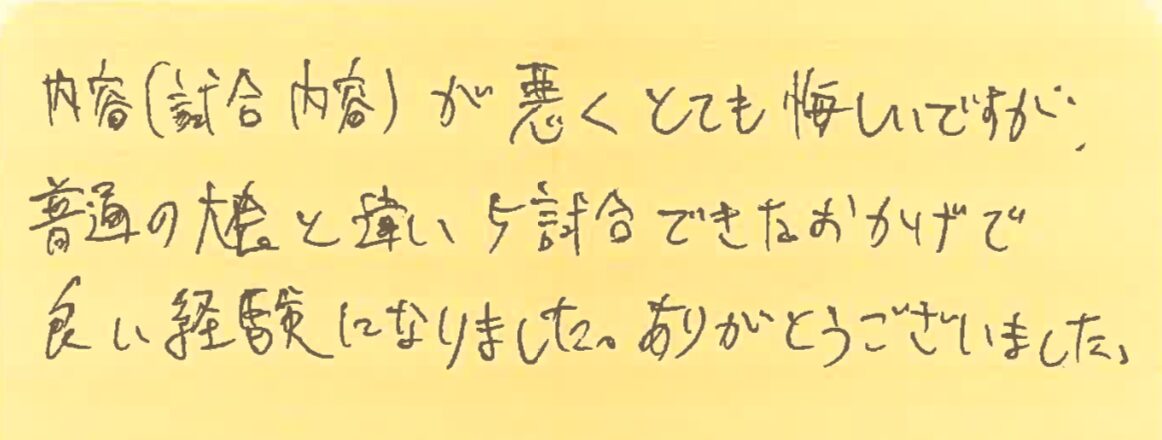 内容(試合内容)が悪くとても悔しいですが、
普通の大会と違い5試合できたおかげで
良い経験になりました。ありがとうございました。